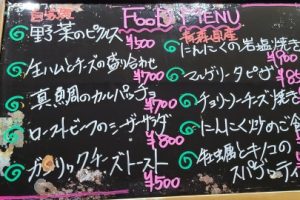 自家製
Food MENU
野菜のピクルス
¥500
生ハムとチーズの盛り合わせ
¥700
真鯛のカルパッチョ
¥700
ローストビーフのシーザーサラダ
¥800
ガーリックチーズトースト
¥500
青森県産
にんにくの岩塩焼き
マルゲリータピザ
チョリソーチーズ焼き
にんにく炒めご
とキノコの
スパゲッティ